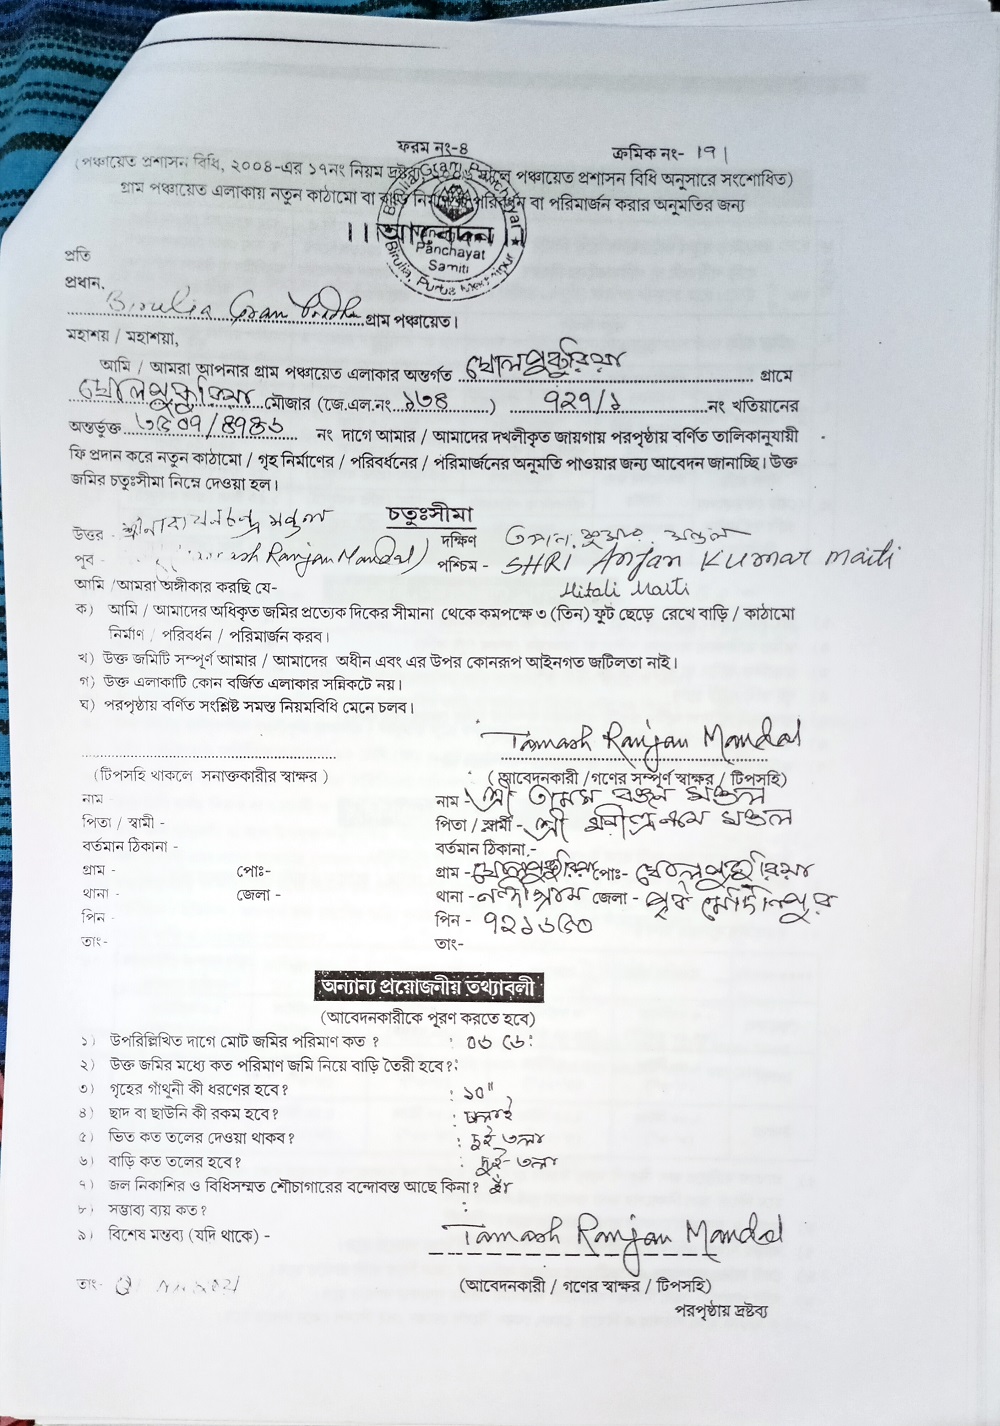 ফরম নং-৪ ক্রমিক নং- 191
(পঞ্চায়েত প্রশাসন বিধি, ২০০৪-এর ১৭নং নিয়ম দ্রষ্টব্য, সালে পঞ্চায়েত প্রশাসন বিধি অনুসারে সংশোধিত)
গ্রাম পঞ্চায়েত এলাকায় নতুন কাঠামো বা বাড়ি নির্মাণ বা পরিবর্ধন বা পরিমার্জন করার অনুমতির জন্য
।। আবেদন ।।
Birulia Gram Panchayat
Panchayat
Samiti
Birulia, Purba
প্রতি
প্রধান,
Birulia Gram গ্রাম পঞ্চায়েত।
মহাশয় / মহাশয়া,
আমি / আমরা আপনার গ্রাম পঞ্চায়েত এলাকার অন্তর্গত ঘোলপুকুরিয়া গ্রামে
ঘোলপুকুরিয়া মৌজার (জে.এল.নং ১৩৪) ৭২৭/১ নং খতিয়ানের
অন্তর্ভুক্ত ৩৫০৭/৪৭৪৬ নং দাগে আমার / আমাদের দখলীকৃত জায়গায় পরপৃষ্ঠায় বর্ণিত তালিকানুযায়ী
ফি প্রদান করে নতুন কাঠামো / গৃহ নির্মাণের / পরিবর্ধনের / পরিমার্জনের অনুমতি পাওয়ার জন্য আবেদন জানাচ্ছি। উক্ত
জমির চতুঃসীমা নিম্নে দেওয়া হল।
চতুঃসীমা
উত্তর - শ্রী নারায়নচন্দ্র মণ্ডল দক্ষিণ তপন কুমার মণ্ডল
পূব - Ranjan Mandal) পশ্চিম - SHRI Anjan Kumar Maiti
Mitali Maiti
আমি /আমরা অঙ্গীকার করছি যে-
ক) আমি / আমাদের অধিকৃত জমির প্রত্যেক দিকের সীমানা থেকে কমপক্ষে ৩ (তিন) ফুট ছেড়ে রেখে বাড়ি / কাঠামো
নির্মাণ / পরিবর্ধন / পরিমার্জন করব।
খ) উক্ত জমিটি সম্পূর্ণ আমার / আমাদের অধীন এবং এর উপর কোনরূপ আইনগত জটিলতা নাই।
গ) উক্ত এলাকাটি কোন বর্জিত এলাকার সন্নিকটে নয়।
ঘ) পরপৃষ্ঠায় বর্ণিত সংশ্লিষ্ট সমস্ত নিয়মবিধি মেনে চলব।
Tamash Ranjan Mandal
(টিপসহি থাকলে সনাক্তকারীর স্বাক্ষর) (আবেদনকারী /গণের সম্পূর্ণ স্বাক্ষর / টিপসহি)
নাম - নাম - শ্রী তামস রঞ্জন মণ্ডল
পিতা / স্বামী - পিতা / স্বামী - শ্রী মণ্ডল
বর্তমান ঠিকানা - বর্তমান ঠিকানা,-
গ্রাম - পোঃ- গ্রাম - ঘোলপুকুরিয়া পোঃ- ঘোলপুকুরিয়া
থানা - জেলা - থানা - নন্দীগ্রাম জেলা - পূর্ব মেদিনীপুর
পিন - পিন - ৭২১৬৫০
তাং- তাং-
অন্যান্য প্রয়োজনীয় তথ্যাবলী
(আবেদনকারীকে পূরণ করতে হবে)
১) উপরিল্লিখিত দাগে মোট জমির পরিমাণ কত ? : ০৬ ডেঃ
২) উক্ত জমির মধ্যে কত পরিমাণ জমি নিয়ে বাড়ি তৈরী হবে?:
৩) গৃহের গাঁথুনী কী ধরণের হবে? : ১০"
৪) ছাদ বা ছাউনি কী রকম হবে? : ঢালাই
৫) ভিত কত তলের দেওয়া থাকব? : দুই তলা
৬) বাড়ি কত তলের হবে? : দুই-তলা
৭) জল নিকাশির ও বিধিসম্মত শৌচাগারের বন্দোবস্ত আছে কিনা? হ্যাঁ
৮) সম্ভাব্য ব্যয় কত? :
৯) বিশেষ মন্তব্য (যদি থাকে) - Tamash Ranjan Mandal
তাং-
(আবেদনকারী / গণের স্বাক্ষর / টিপসহি)
পরপৃষ্ঠায় দ্রষ্টব্য